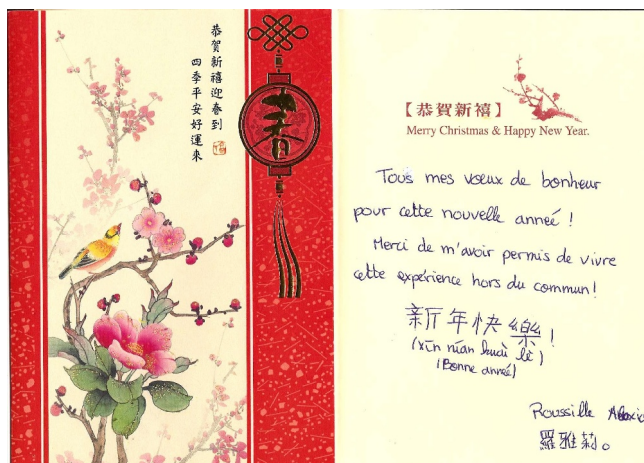 恭賀新禧迎春到
四季平安好運來
春
【恭賀新禧】
Merry Christmas & Happy New Year.
Tous mes vœux de bonheur
pour cette nouvelle anneé !
Merci de m'avoir permis de vivre
cette expérience hors du commun!
新年快樂!
(xīn nián kuài lè)
(Bonne anneé)
Roussille
羅雅莉。